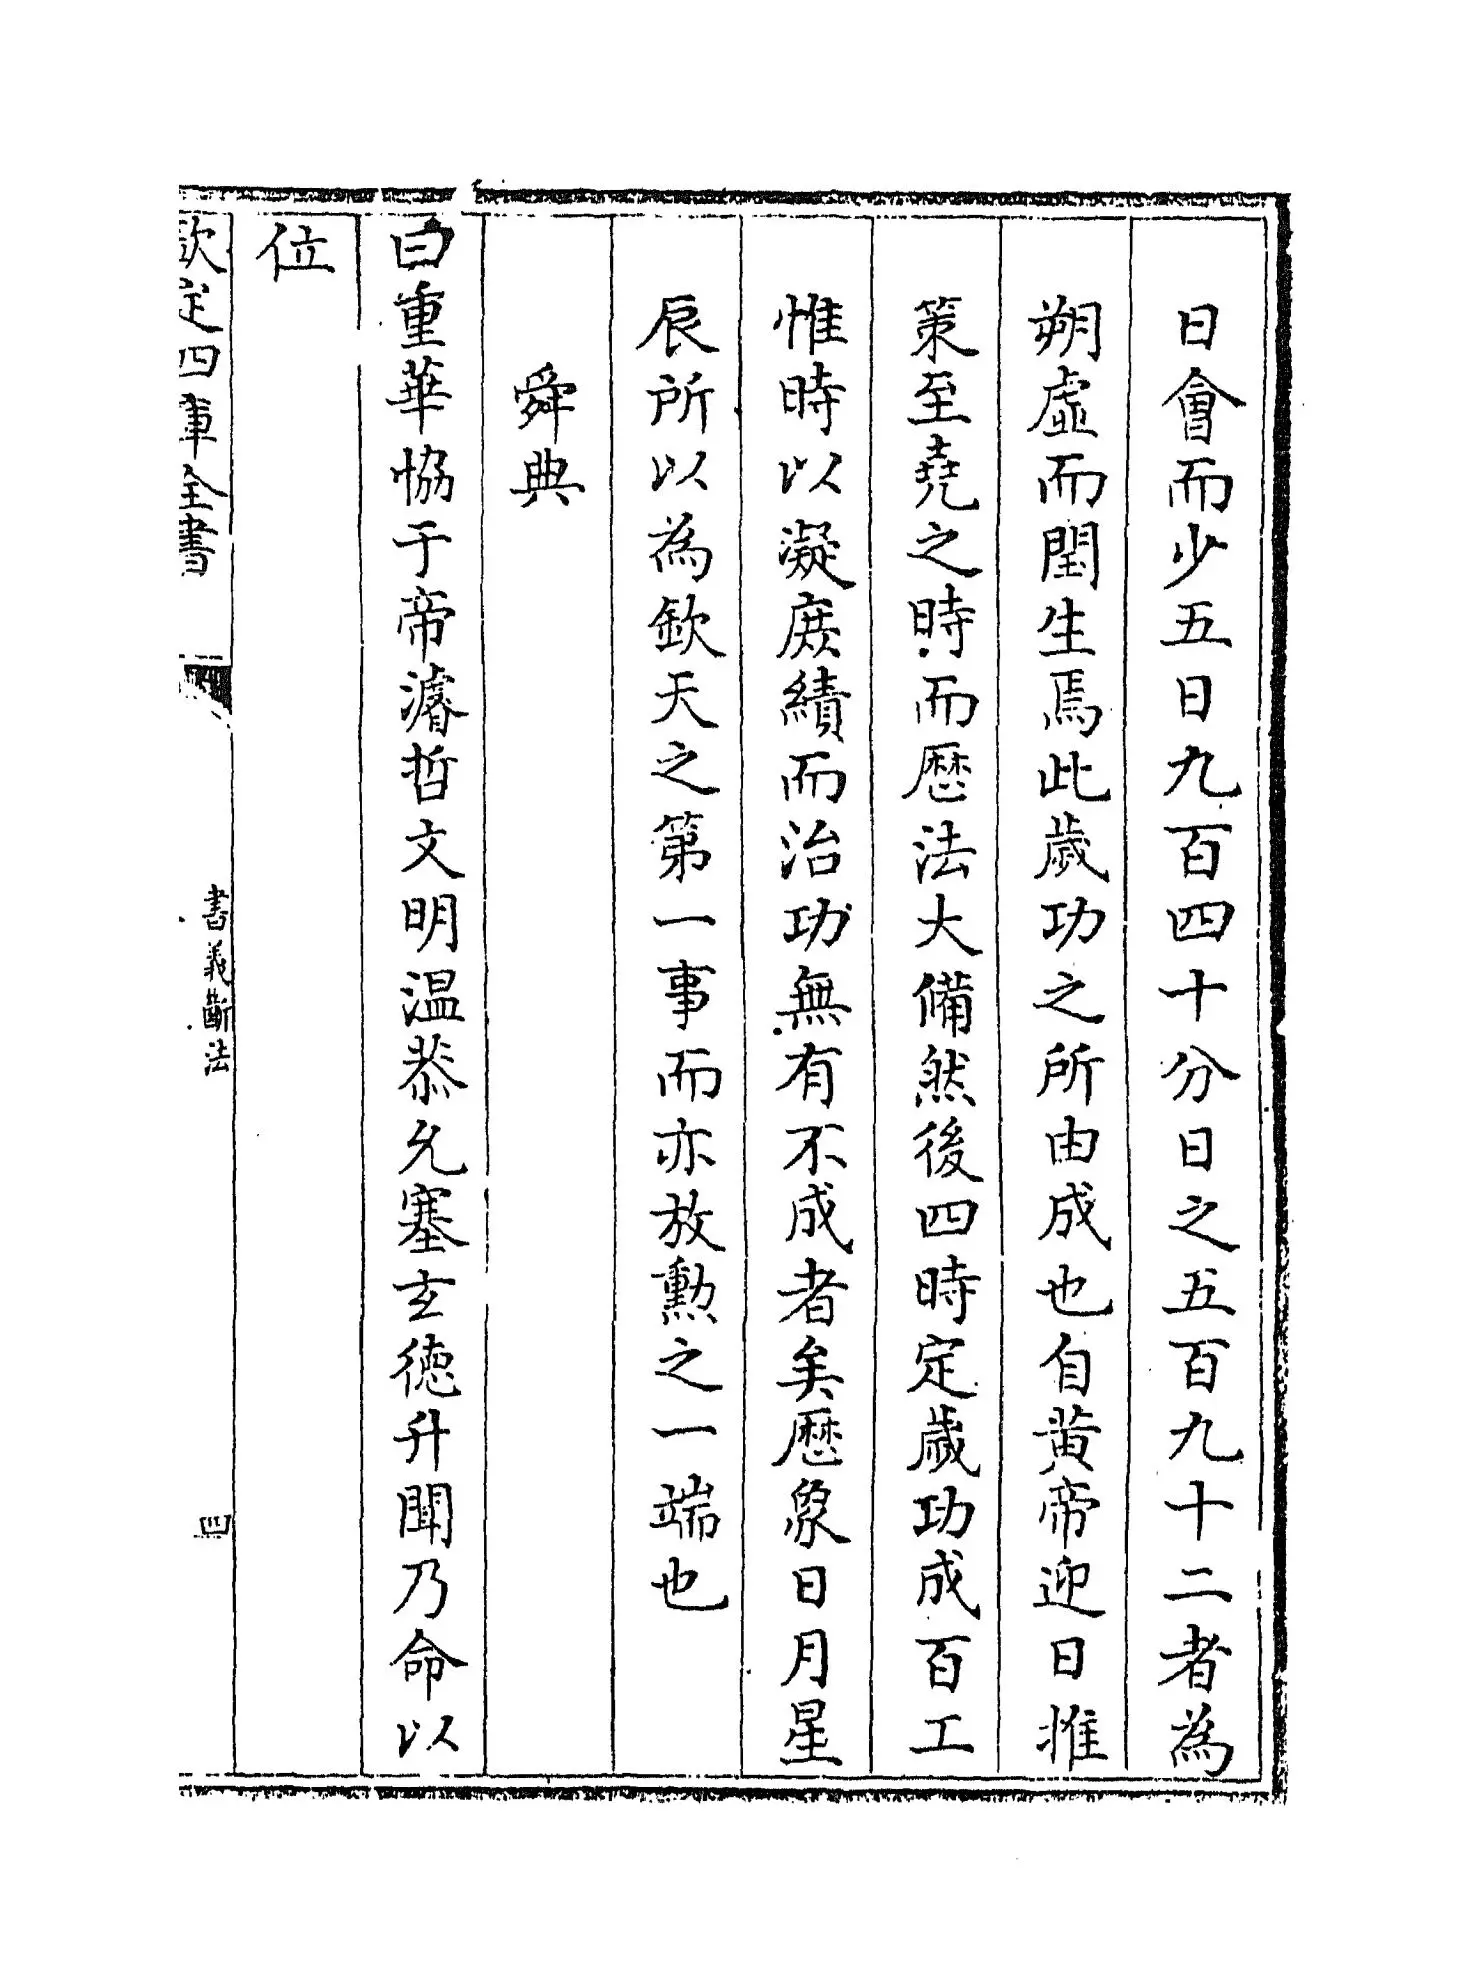 日會而少五日九百四十分日之五百九十二者為
朔虛而閏生焉此歲功之所由成也自黃帝迎日推
策至堯之時而歴法大備然後四時定歲功成百工
惟時以凝庶績而治功無有不成者矣歴象日月星
辰所以為欽天之第一事而亦放勲之一端也
舜典
曰重華恊于帝濬哲文明温恭允塞玄德升聞乃命以
位
欽定四庫全書
書義斷法
四